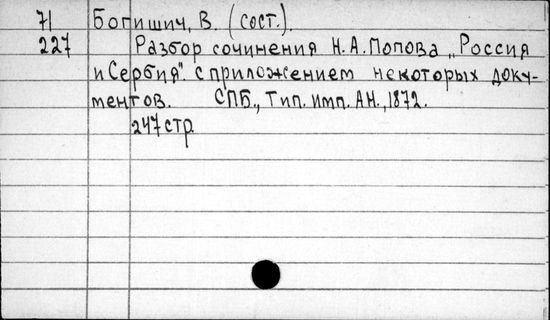 71 Богишич, В. (сост.).
227 Разбор сочинения Н.А.Попова „Россия
и Сербия". с приложением некоторых доку-
ментов. СПБ., Тип. имп. АН., 1872.
247 стр